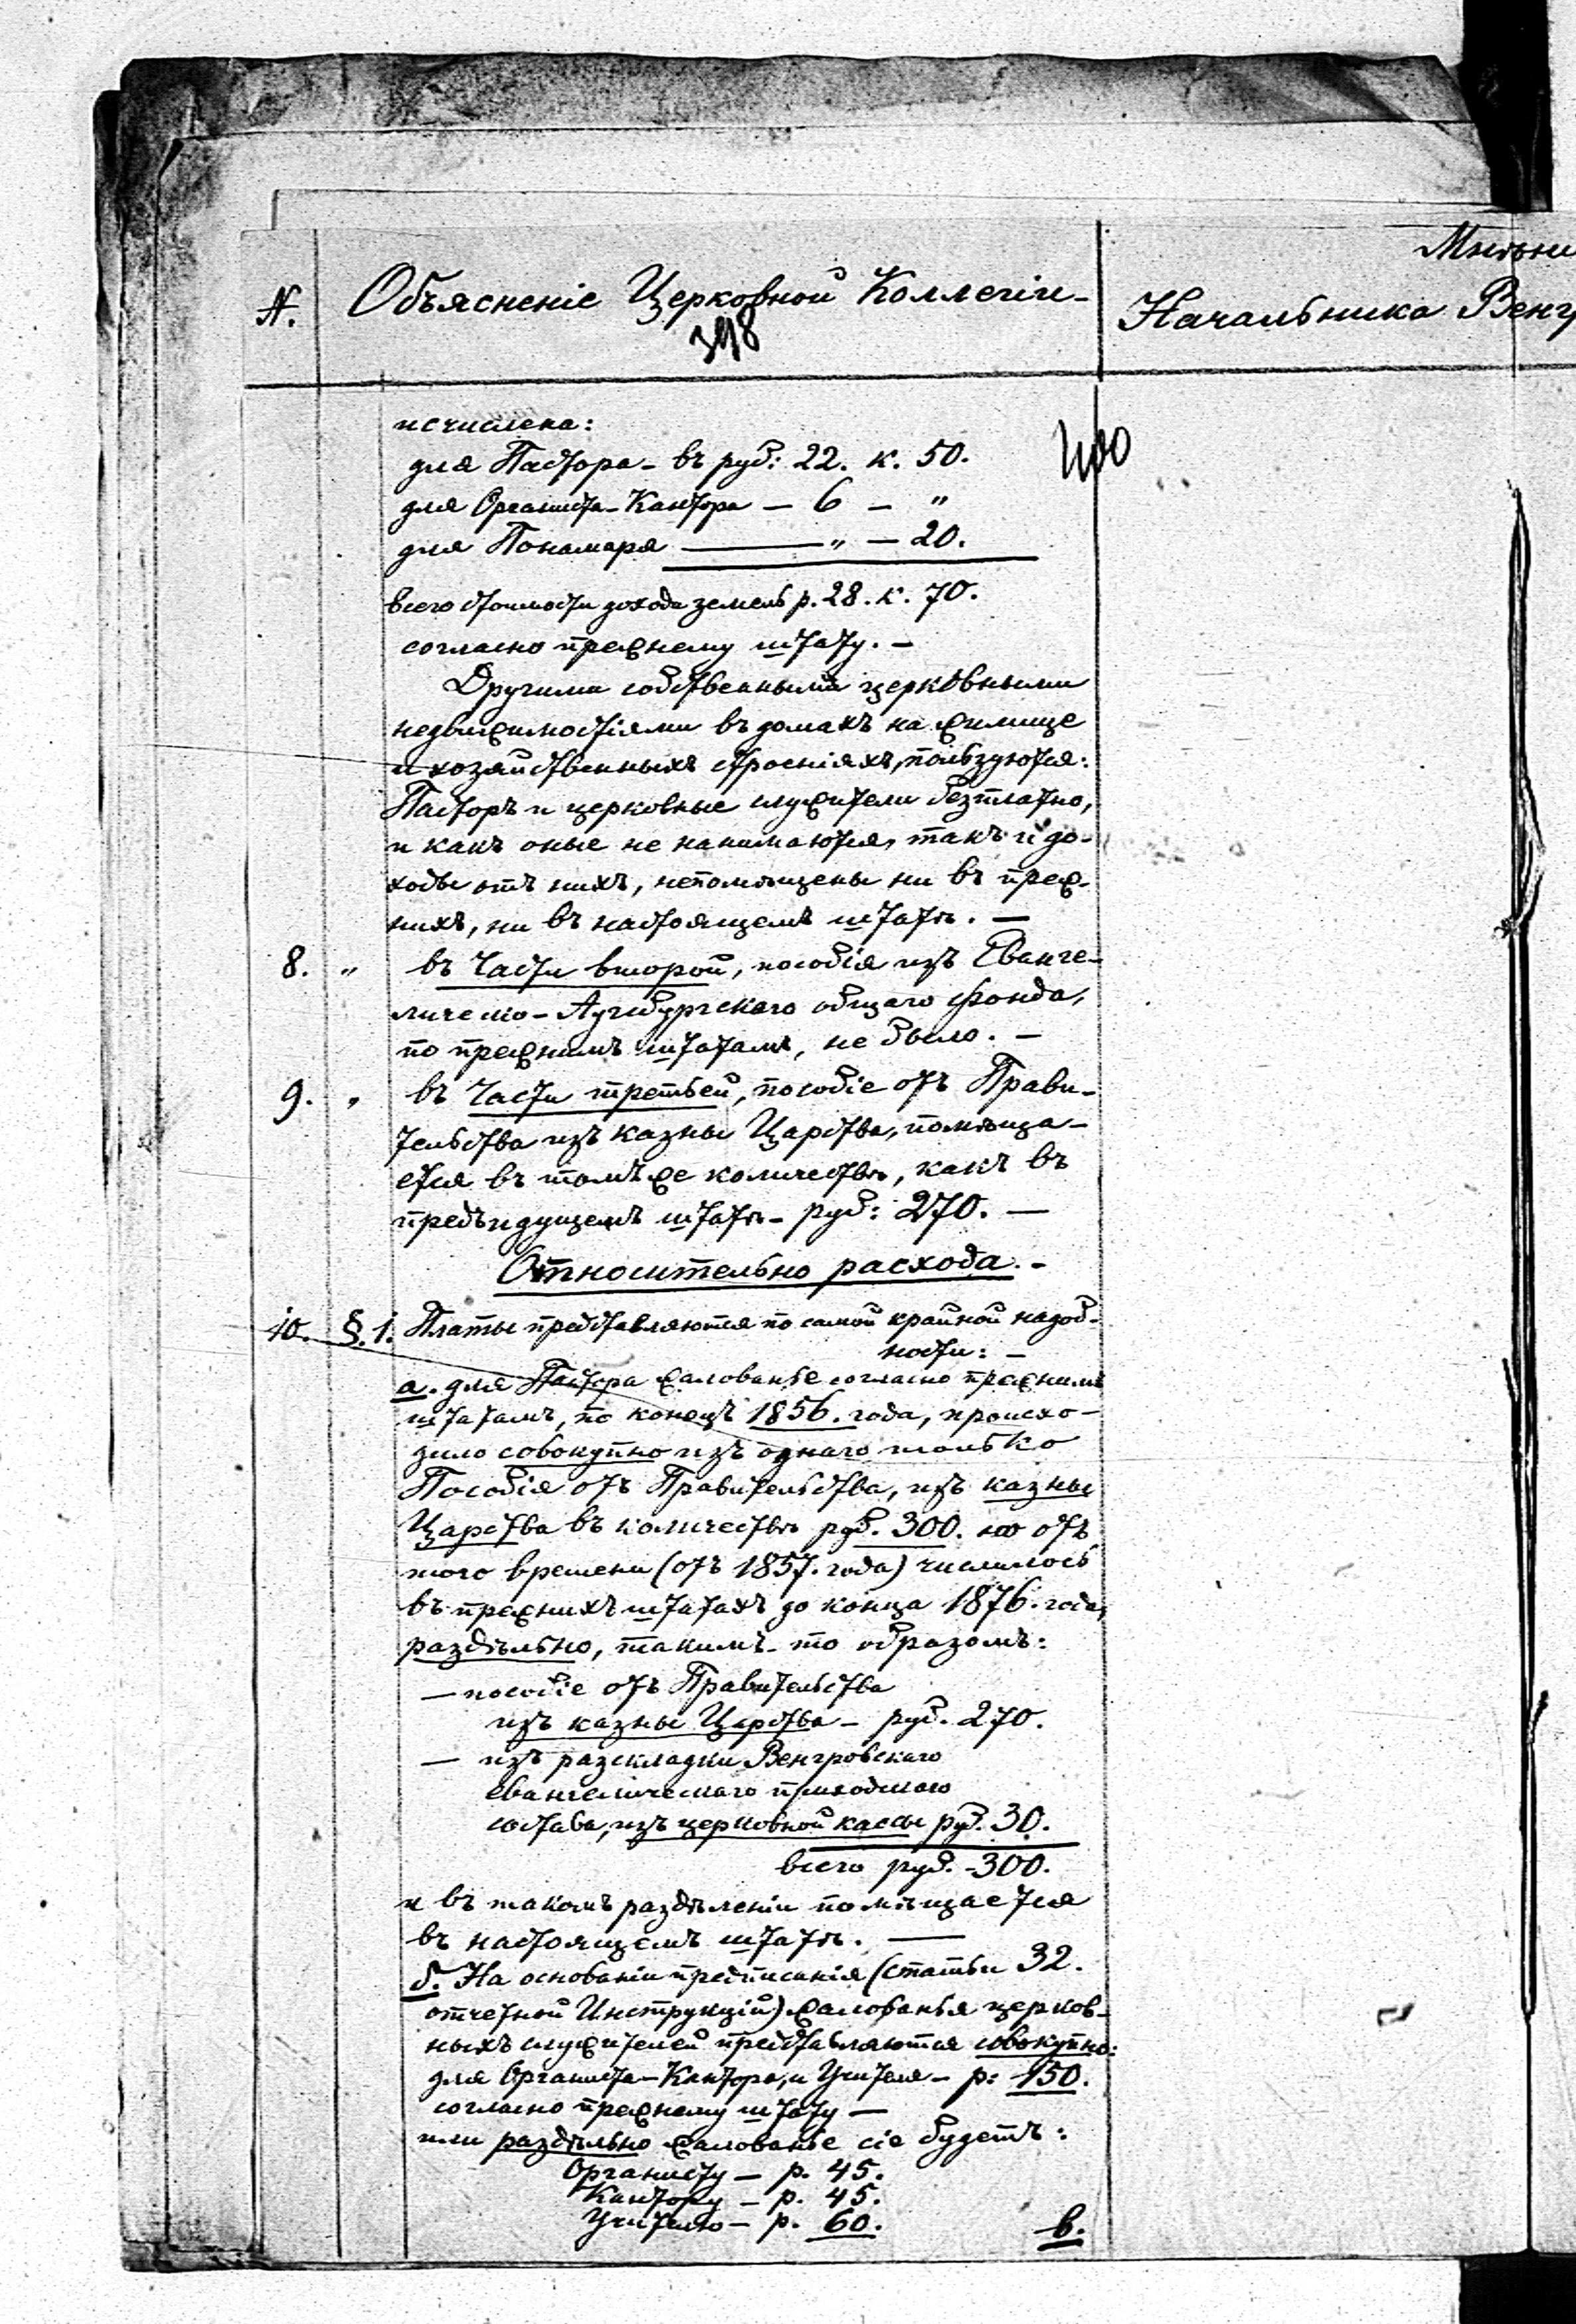 Мнѣни
N. Объясненіе Церковной Коллегіи- Начальника Венг
398
исчислена:
для Пастора - въ руб: 22. к. 50. 400
для Органиста-Кантора — 6 — "
для Пономаря ——— " — 20.
всего стоимости дохода земель р. 28. к. 70.
согласно прежнему штату. —
Другими собственными церковными
недвижимостіями въ домахъ на жилище
и хозяйственныхъ строеніяхъ, пользуются:
Пасторъ и церковные служители безплатно,
и какъ оные не нанимаются, такъ и до-
ходы отъ нихъ, непомѣщены ни въ преж-
нихъ, ни въ настоящемъ штатѣ. —
8. " въ Части второй, пособія изъ Еванге-
лическо-Аугсбургскаго общаго фонда,
по прежнимъ штатамъ, не было. —
9. " въ Части третьей, пособіе отъ Прави-
тельства изъ казны Царства, помѣща-
ется въ томъ же количествѣ, какъ въ
предъидущемъ штатѣ - руб: 270. —
Относительно расхода. -
10. §. 1. Платы представляются по самой крайной надоб-
ности: —
а. для Пастора жалованье согласно прежнимъ
штатамъ, по конецъ 1856. года, происхо-
дило совокупно изъ однаго только
Пособія отъ Правительства, изъ казны
Царства въ количествѣ руб. 300. но отъ
того времени (отъ 1857. года) числилось
въ прежнихъ штатахъ до конца 1876. года,
раздѣльно, такимъ-то образомъ:
— пособіе отъ Правительства
изъ казны Царства - руб. 270.
— изъ раскладки Венгровскаго
евангелическаго приходскаго
состава, изъ церковной кассы руб. 30.
всего руб. - 300.
и въ такомъ раздѣленіи помѣщается
въ настоящемъ штатѣ. —
б. На основаніи предписанія (Статьи 32.
отчетной Инструкціи) жалованья церков-
ныхъ служителей представляются совокупно:
для Органиста-Кантора, и Учителя - р: 150.
согласно прежнему штату —
или раздѣльно жалованье сіе будетъ:
Органисту — р. 45.
Кантору — р. 45.
Учителю — р. 60. в.